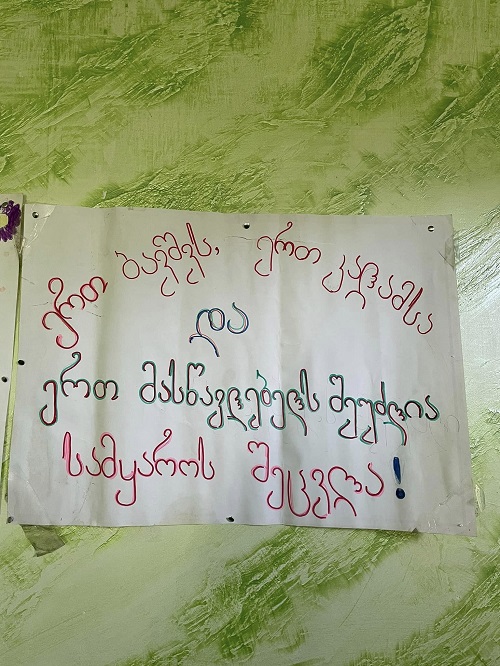 ერთ ბავშვს, ერთ კალამსა
და
ერთ მასწავლებელს შეუძლია
სამყაროს შეცვლა!